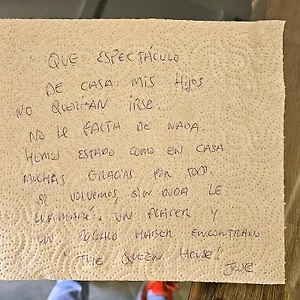 QUE ESPECTÁCULO
DE CASA. MIS HIJOS
NO QUERÍAN IRSE.
NO LE FALTA DE NADA.
HEMOS ESTADO COMO EN CASA
MUCHAS GRACIAS POR TODO.
SI VOLVEMOS, SIN DUDA LE
UN PLACER Y
UN HABER ENCONTRADO
"THE QUEEN HOUSE"
JOSE